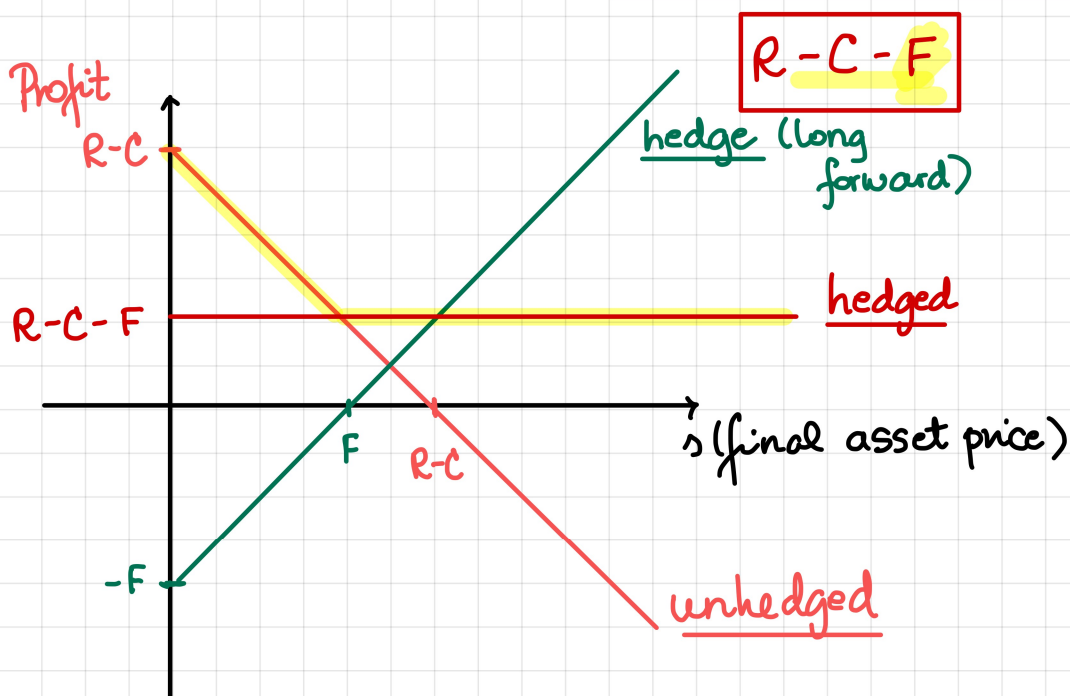 R-C-F
Profit
R-C
hedge (long
forward)
hedged
R-C-F
s (final asset price)
F
R-C
-F
unhedged